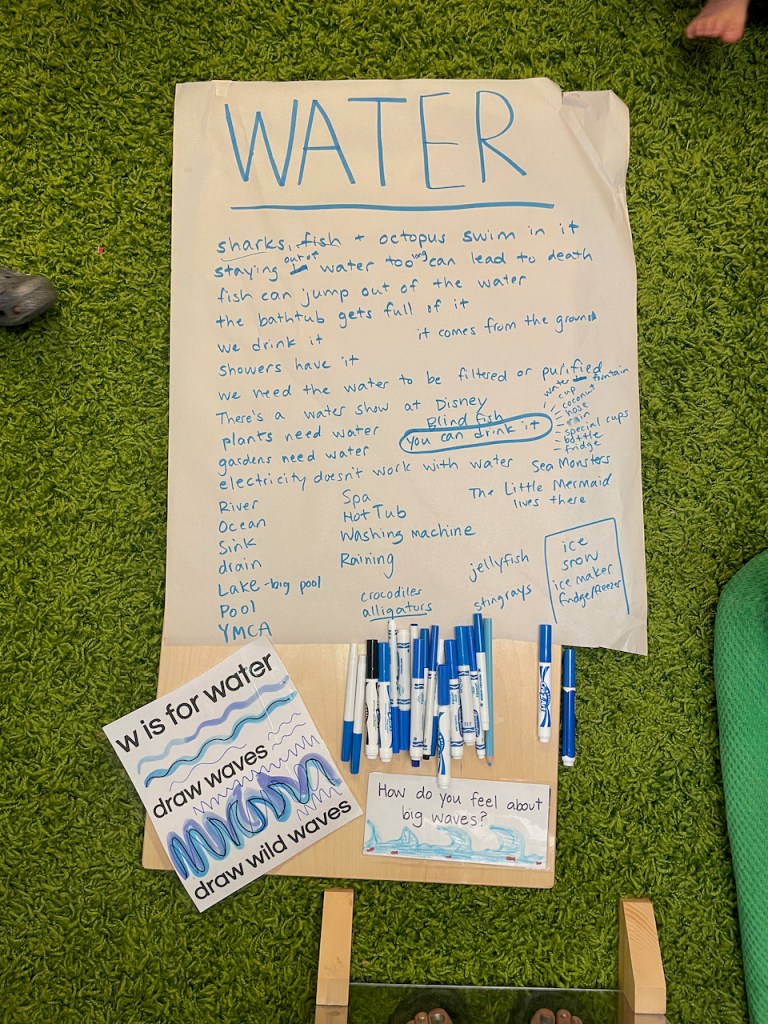 WATER
sharks, fish + octopus swim in it
staying out of water too long can lead to death
fish can jump out of the water
the bathtub gets full of it
we drink it
it comes from the ground
showers have it
we need the water to be filtered or purified
There's a water show at Disney
plants need water
Blind fish
you can drink it
water fountain
cup
coconut
hose
rain
special cups
bottle
fridge
gardens need water
electricity doesn't work with water
Sea Monsters
The Little Mermaid
lives there
River
Ocean
Sink
drain
Lake - big pool
Pool
YMCA
Spa
Hot Tub
Washing machine
Raining
crocodiles
alligators
jellyfish
stingrays
ice
snow
ice maker
fridge/freezer
w is for water
draw waves
draw wild waves
How do you feel about
big waves?